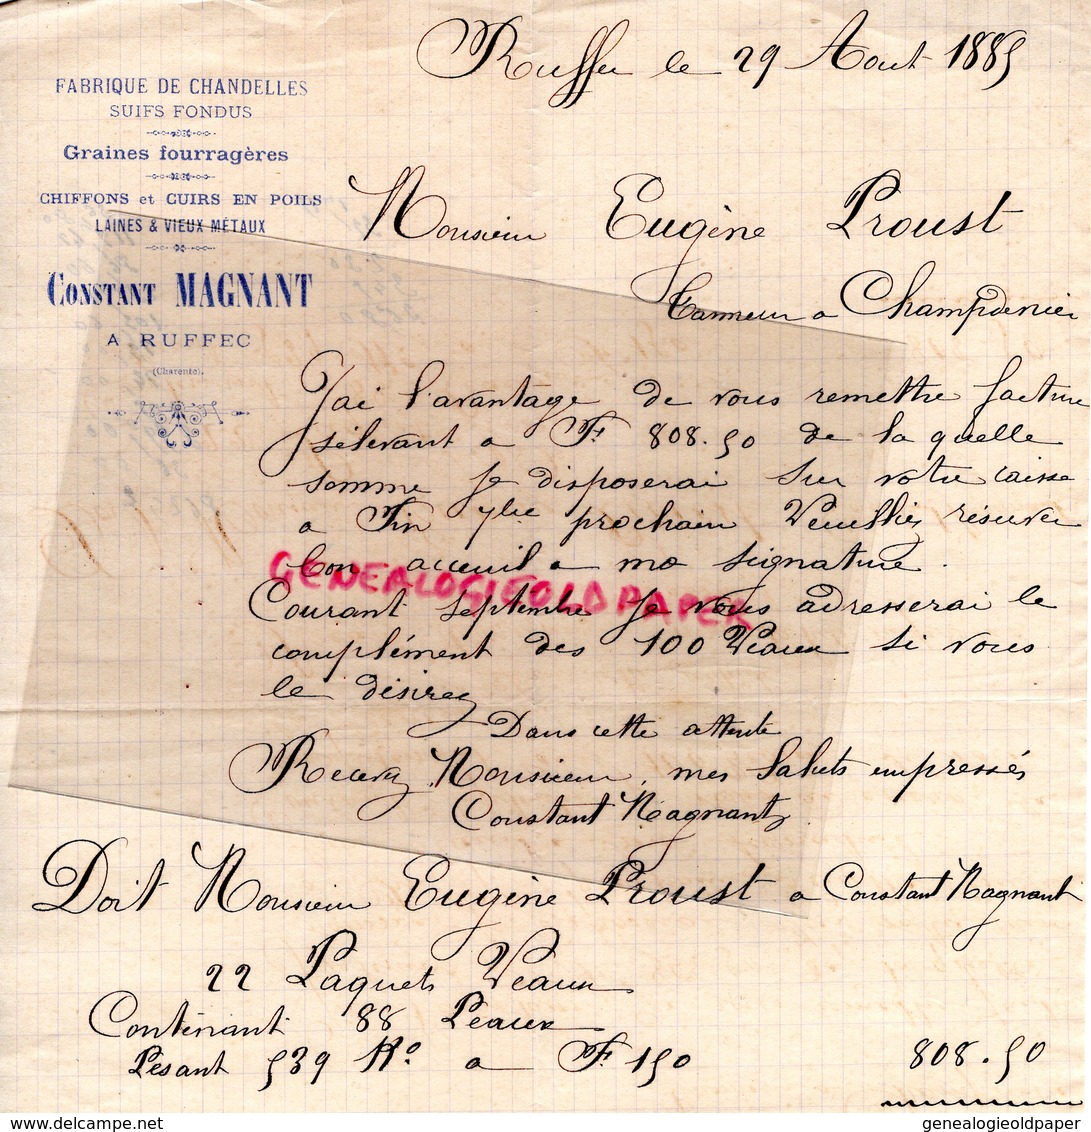 Ruffec le 29 Aout 1885
FABRIQUE DE CHANDELLES
SUIFS FONDUS
Graines fourragères
CHIFFONS et CUIRS EN POILS
LAINES & VIEUX MÉTAUX
CONSTANT MAGNANT
A RUFFEC
(Charente).
Monsieur Eugène Proust
Tanneur a Champdenier
J'ai l'avantage de vous remettre facture
s'élevant a F. 808.50 de la quelle
somme je disposerai sur votre caisse
a Fin 7bre prochain Veuillez réserver
bon acceuil a ma signature.
Courant septembre je vous adresserai le
complément des 100 Veaux si vous
le désirez
Dans cette attente
Recevez Monsieur, mes saluts empressés
Constant Magnant
Doit Monsieur Eugène Proust a Constant Magnant
22 Paquets Veaux
Contenant 88 Peaux
Pesant 539 Ko a F. 150 808.50
GENEALOGIEOLDPAPER
genealogieoldpaper